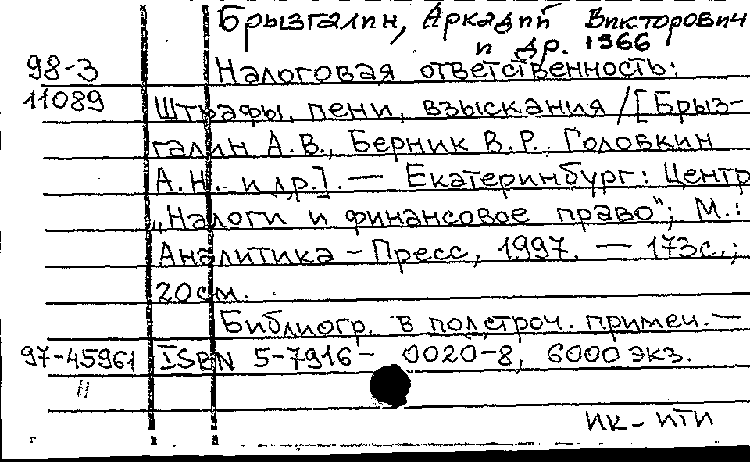 Брызгалин, Аркадий Викторович
и др. 1966
98-3 Налоговая ответственность:
11089 Штрафы, пени, взыскания / [Брыз-
галин А.В., Берник В.Р., Головкин
А.Н. и др.]. — Екатеринбург: Центр
„Налоги и финансовое право"; М.:
Аналитика-Пресс, 1997. — 173с.;
20см.
Библиогр. в подстроч. примеч. —
97-45961 ISBN 5-7916-0020-8, 6000 экз.
ИК-ИТИ